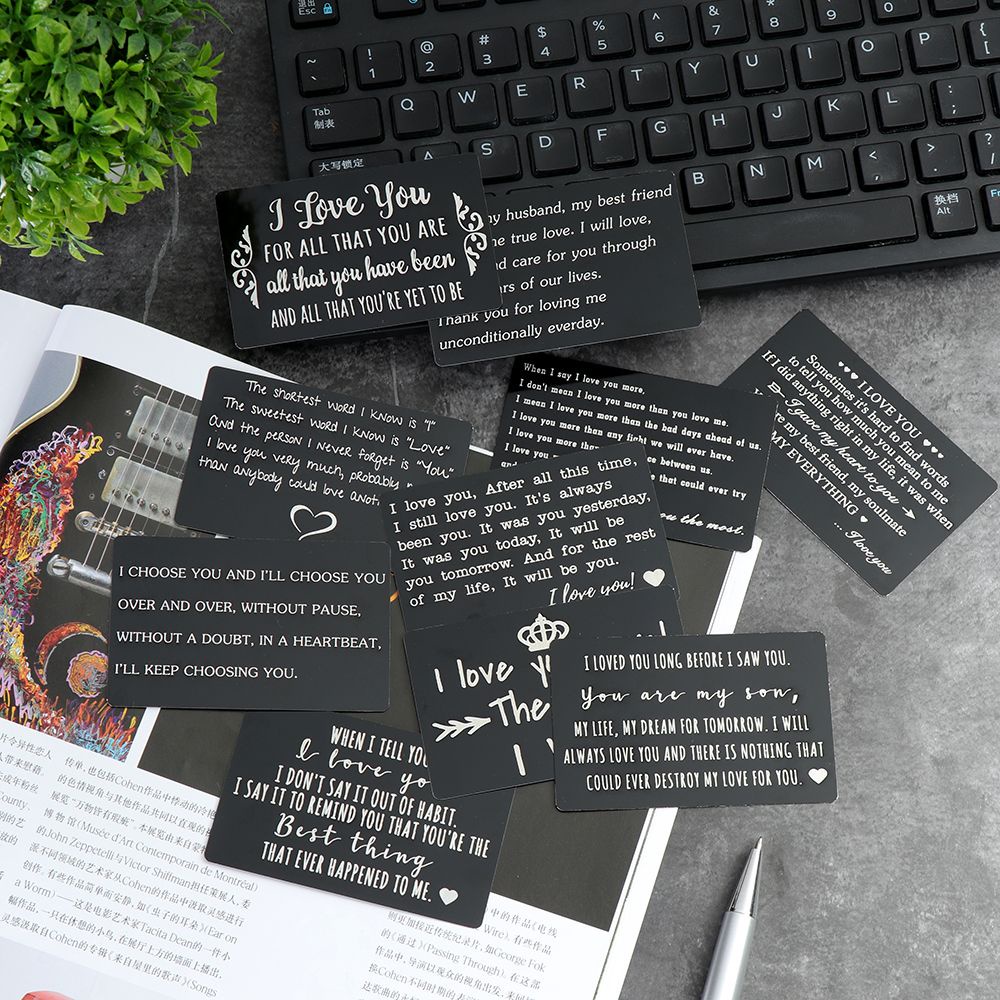 退出
Esc
~
`
!
1
@
2
#
3
$
4
%
5
^
6
&
7
*
8
(
9
)
0
Tab
制表
Q W E R T Y U I O P
大写锁定
A S D F G H J K L
:
;
B N M
换档
Alt
I Love You
FOR ALL THAT YOU ARE
all that you have been
AND ALL THAT YOU'RE YET TO BE
my husband, my best friend
true love. I will love,
care for you through
of our lives.
Thank you for loving me
unconditionally everday.
The shortest word I know is "I"
The sweetest word I know is "Love"
And the person I never forget is "You"
I love you very much, probably
than anybody could love
When I say I love you more,
I don't mean I love you more than you love me.
I mean I love you more than the bad days ahead of us.
I love you more than any fight we will ever have.
I love you more than between us.
that could ever try
you the most.
♥♥♥ I LOVE YOU ♥♥♥
Sometimes it's hard to find words
to tell you how much you mean to me
If I did anything right in my life, it was when
I gave my heart to you
my best friend, my soulmate
MY EVERYTHING
... I love you
I love you, After all this time,
I still love you. It's always
been you. It was you yesterday,
It was you today, It will be
you tomorrow. And for the rest
of my life, It will be you.
I love you!
I CHOOSE YOU AND I'LL CHOOSE YOU
OVER AND OVER, WITHOUT PAUSE,
WITHOUT A DOUBT, IN A HEARTBEAT,
I'LL KEEP CHOOSING YOU.
I love
The
I
I LOVED YOU LONG BEFORE I SAW YOU.
You are my son,
MY LIFE, MY DREAM FOR TOMORROW. I WILL
ALWAYS LOVE YOU AND THERE IS NOTHING THAT
COULD EVER DESTROY MY LOVE FOR YOU.
WHEN I TELL YOU
I love you
I DON'T SAY IT OUT OF HABIT.
I SAY IT TO REMIND YOU THAT YOU'RE THE
Best thing
THAT EVER HAPPENED TO ME.
片令异性恋人
人带来慰藉
County.
传单，也包括Cohen作品中悸动的冷艳
的色情视角与其他作品共同以直观的
展览“万物皆有罅隙”。本展览由来自蒙
博物馆(Musée d'Art Contemporain de Montréal)
的John Zeppetelli与Victor Shiffman担任策展人，委
派不同领域的艺术家从Cohen的作品中汲取灵感进行
创作。有些作品简单而安静，如《虫子的耳朵》(Ear on
a Worm)——这是电影艺术家Tacita Dean的一件
幅作品，一只在休憩的小鸟，在展厅上方的墙面上播出，
灵感汲取自Cohen的专辑《来自屋里的歌声》(Songs
则更加接近传统纪录片，如George Fok
的《通过》(Passing Through)。在这部
作品中，导演以观众的视角出发，来回
换Cohen不同时期的表演
达歌曲的
中的作品《电线
Wire)。有些作品